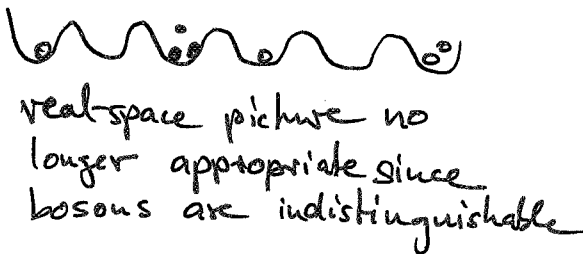 real-space picture no
longer appropriate since
bosons are indistinguishable